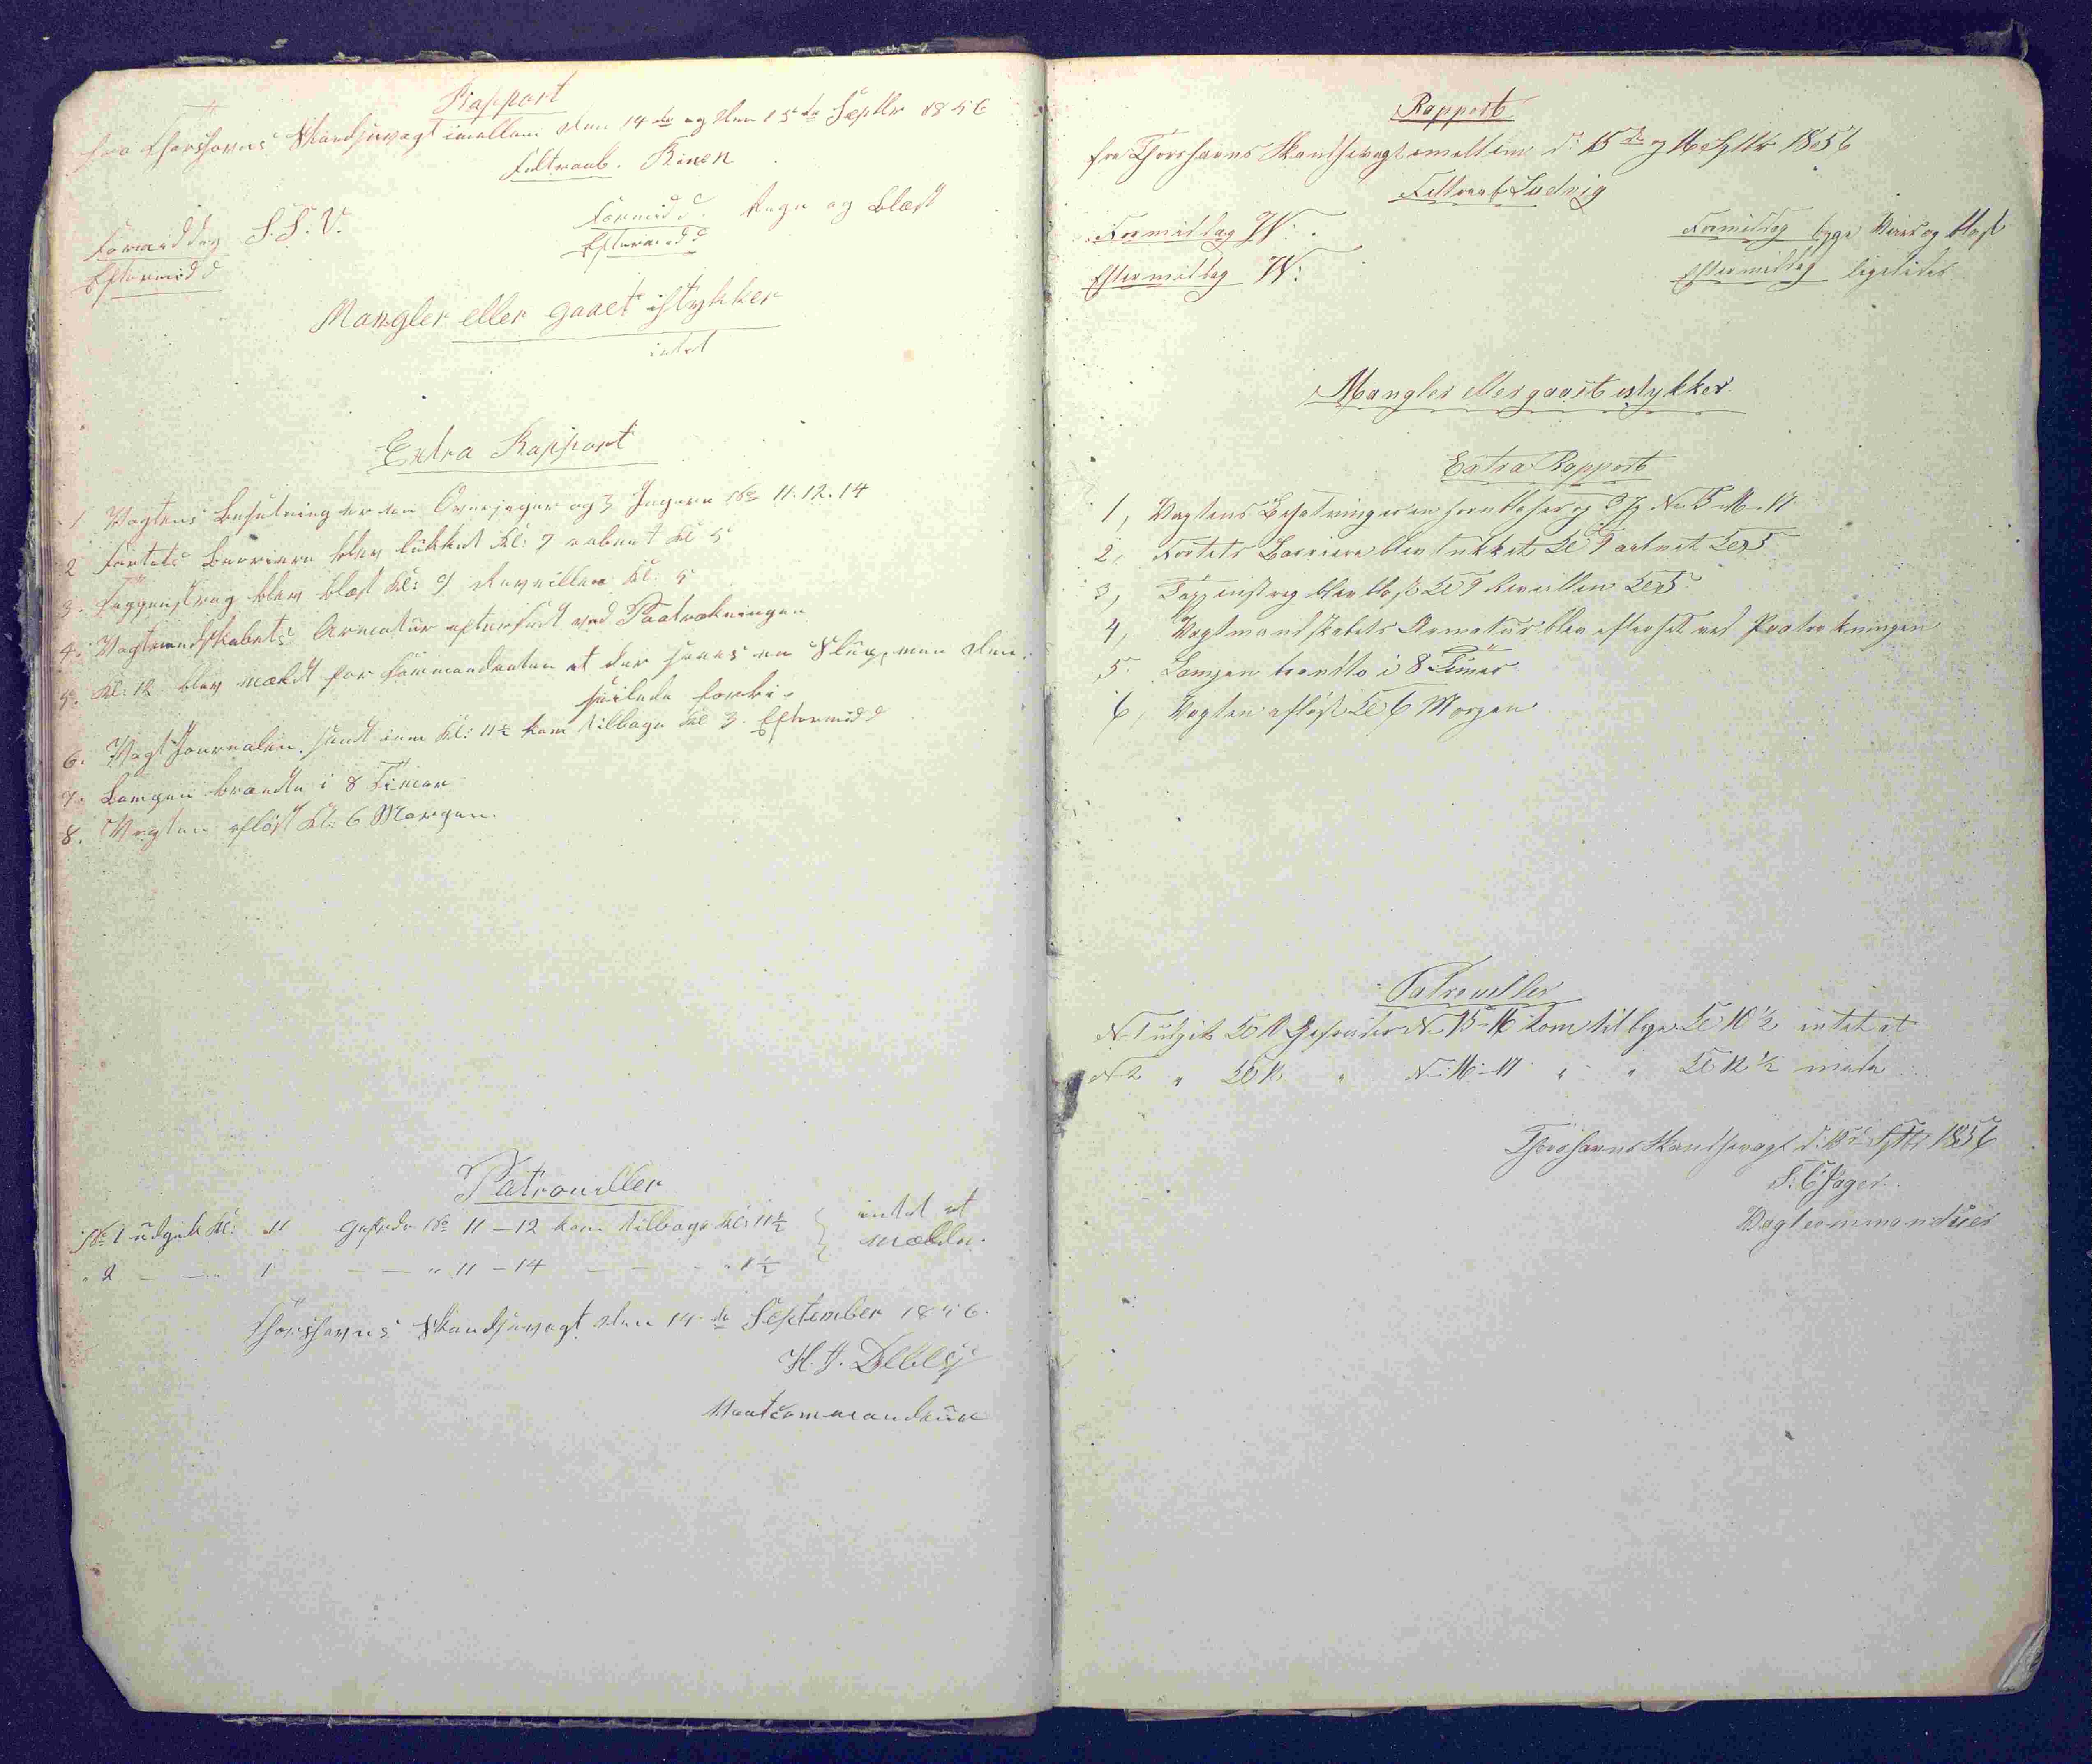 Rapport
fra Thorshavns Skandsevagt imellem den 14de og den 15de Septbr 1856
Feltraab. Rinen
Formiddag S.S.V. Formidd. Regn og Blæst
Eftermidd Eftermidd
Mangler eller gaaet istykker
intet
Extra Rapport
1 Vagtens Besætning er en Overjæger og 3 Jægere No 11.12.14
2 Fortets Barriere blev lukket Kl: 9 aabent Kl 5
3. Tappenstreg blev blæst Kl: 9 Reveillen Kl: 5
4. Vagtmandskabets Armatür efterseet ved Paatrækningen
5. Kl: 12 blev meldt for Commandanten at der saaes en Slup, men den
seilede forbi.
6. Vagt Journalen sendt ind Kl: 11½ kom tilbage Kl 3. Eftermidd
7. Lampen brændte i 8 Timer
8. Vagten afløst Kl: 6 Morgen.
Patrouiller
No 1 udgik Kl: 11 Gefreider No 11 - 12 kom tilbage Kl: 11½ intet at
melde.
" 2 — — " 1 — — " 11 - 14 — — - " 1½
Thorshavns Skandsevagt den 14de September 1856.
H. J. Debes
Vagtcommandeür
Rapport
fra Thorshavns Skandsevagt imellem d: 15de og 16 Sptbr 1856
Feltraab Ludvig
Formiddag W: Formiddag byge Veir og blæst
Eftermiddag W: Eftermiddag ligeledes
Mangler eller gaaet istykker
Extra Rapport
1, Vagtens Besætning er en hornblæser og 3 J No 15-16-17
2, Fortets Barriere blev lukket Kl 9 aabnet Kl 5
3, Tappenstreg blev blæst Kl 9 Reveillen Kl 5
4, Vagtmandskabets Armatür blev efterset ved Paatrækningen
5 Lampen brendte i 8 Timer
6, Vagten afløst Kl 6 Morgen
Patrouiller
N 1 udgik Kl 10 Gefreider No 15-16 kom tilbage Kl 10½ intet at
N 2 " Kl 12 " No 16-17 " " Kl 12½ melde
Thorshavns Skandsevagt d: 15de Sptbr 1856
Vagtcommandüer